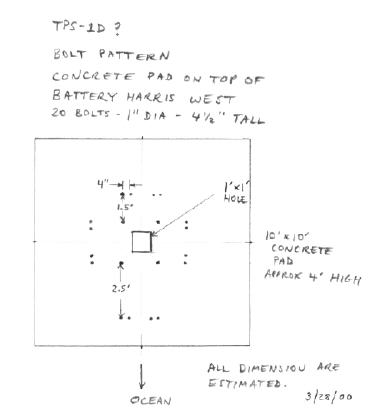 TPS-1D ?
BOLT PATTERN
CONCRETE PAD ON TOP OF
BATTERY HARRIS WEST
20 BOLTS - 1" DIA - 4½" TALL
4"
1.5'
1'x1'
HOLE
10'x10'
CONCRETE
PAD
APPROX 4' HIGH
2.5'
ALL DIMENSION ARE
ESTIMATED.
OCEAN
3/28/00